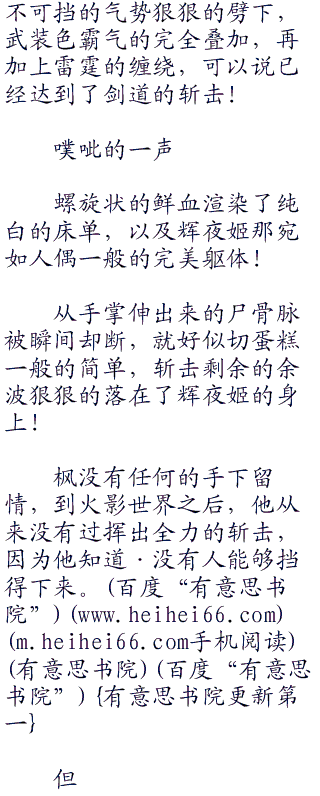 不可挡的气势狠狠的劈下，
武装色霸气的完全叠加，再
加上雷霆的缠绕，可以说已
经达到了剑道的斩击！
噗呲的一声
螺旋状的鲜血渲染了纯
白的床单，以及辉夜姬那宛
如人偶一般的完美躯体！
从手掌伸出来的尸骨脉
被瞬间却断，就好似切蛋糕
一般的简单，斩击剩余的余
波狠狠的落在了辉夜姬的身
上！
枫没有任何的手下留
情，到火影世界之后，他从
来没有过挥出全力的斩击，
因为他知道·没有人能够挡
得下来。(百度“有意思书
院”)(www.heihei66.com)
(m.heihei66.com手机阅读)
(有意思书院)(百度“有意思
书院”){有意思书院更新第
一}
但